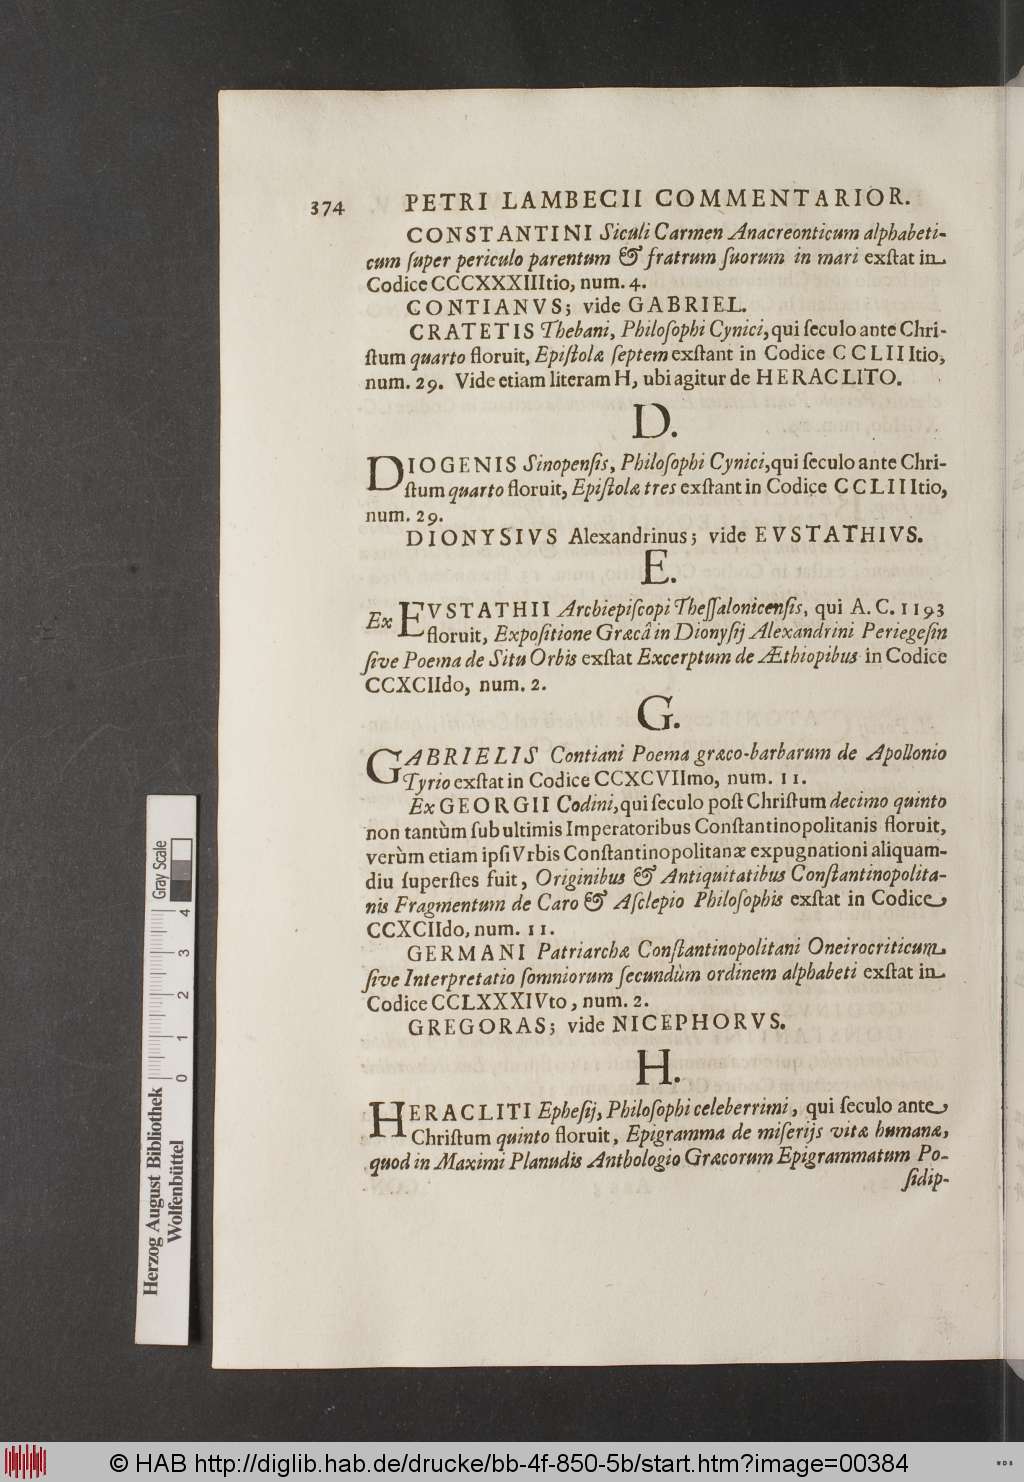 374 PETRI LAMBECII COMMENTARIOR.
CONSTANTINI Siculi Carmen Anacreonticum alphabeti-
cum ſuper periculo parentum & fratrum ſuorum in mari exſtat in
Codice CCCXXXIIItio, num. 4.
CONTIANVS; vide GABRIEL.
CRATETIS Thebani, Philoſophi Cynici, qui ſeculo ante Chri-
ſtum quarto floruit, Epiſtolæ ſeptem exſtant in Codice CCLIIItio,
num. 29. Vide etiam literam H, ubi agitur de HERACLITO.
D.
DIOGENIS Sinopenſis, Philoſophi Cynici, qui ſeculo ante Chri-
ſtum quarto floruit, Epiſtolæ tres exſtant in Codice CCLIIItio,
num. 29.
DIONYSIVS Alexandrinus; vide EVSTATHIVS.
E.
Ex EVSTATHII Archiepiſcopi Theſſalonicenſis, qui A. C. 1193
floruit, Expoſitione Græcâ in Dionyſij Alexandrini Periegeſin
ſive Poema de Situ Orbis exſtat Excerptum de Æthiopibus in Codice
CCXCIIdo, num. 2.
G.
GABRIELIS Contiani Poema græco-barbarum de Apollonio
Tyrio exſtat in Codice CCXCVIImo, num. 11.
Ex GEORGII Codini, qui ſeculo poſt Chriſtum decimo quinto
non tantùm ſub ultimis Imperatoribus Conſtantinopolitanis floruit,
verùm etiam ipſi Vrbis Conſtantinopolitanæ expugnationi aliquam-
diu ſuperſtes fuit, Originibus & Antiquitatibus Conſtantinopolita-
nis Fragmentum de Caro & Aſclepio Philoſophis exſtat in Codice
CCXCIIdo, num. 11.
GERMANI Patriarchæ Conſtantinopolitani Oneirocriticum
ſive Interpretatio ſomniorum ſecundùm ordinem alphabeti exſtat in
Codice CCLXXXIVto, num. 2.
GREGORAS; vide NICEPHORVS.
H.
HERACLITI Epheſij, Philoſophi celeberrimi, qui ſeculo ante
Chriſtum quinto floruit, Epigramma de miſerijs vitæ humanæ,
quod in Maximi Planudis Anthologio Græcorum Epigrammatum Po-
ſidip-
Gray Scale
0 1 2 3 4
Herzog August Bibliothek
Wolfenbüttel
© HAB http://diglib.hab.de/drucke/bb-4f-850-5b/start.htm?image=00384